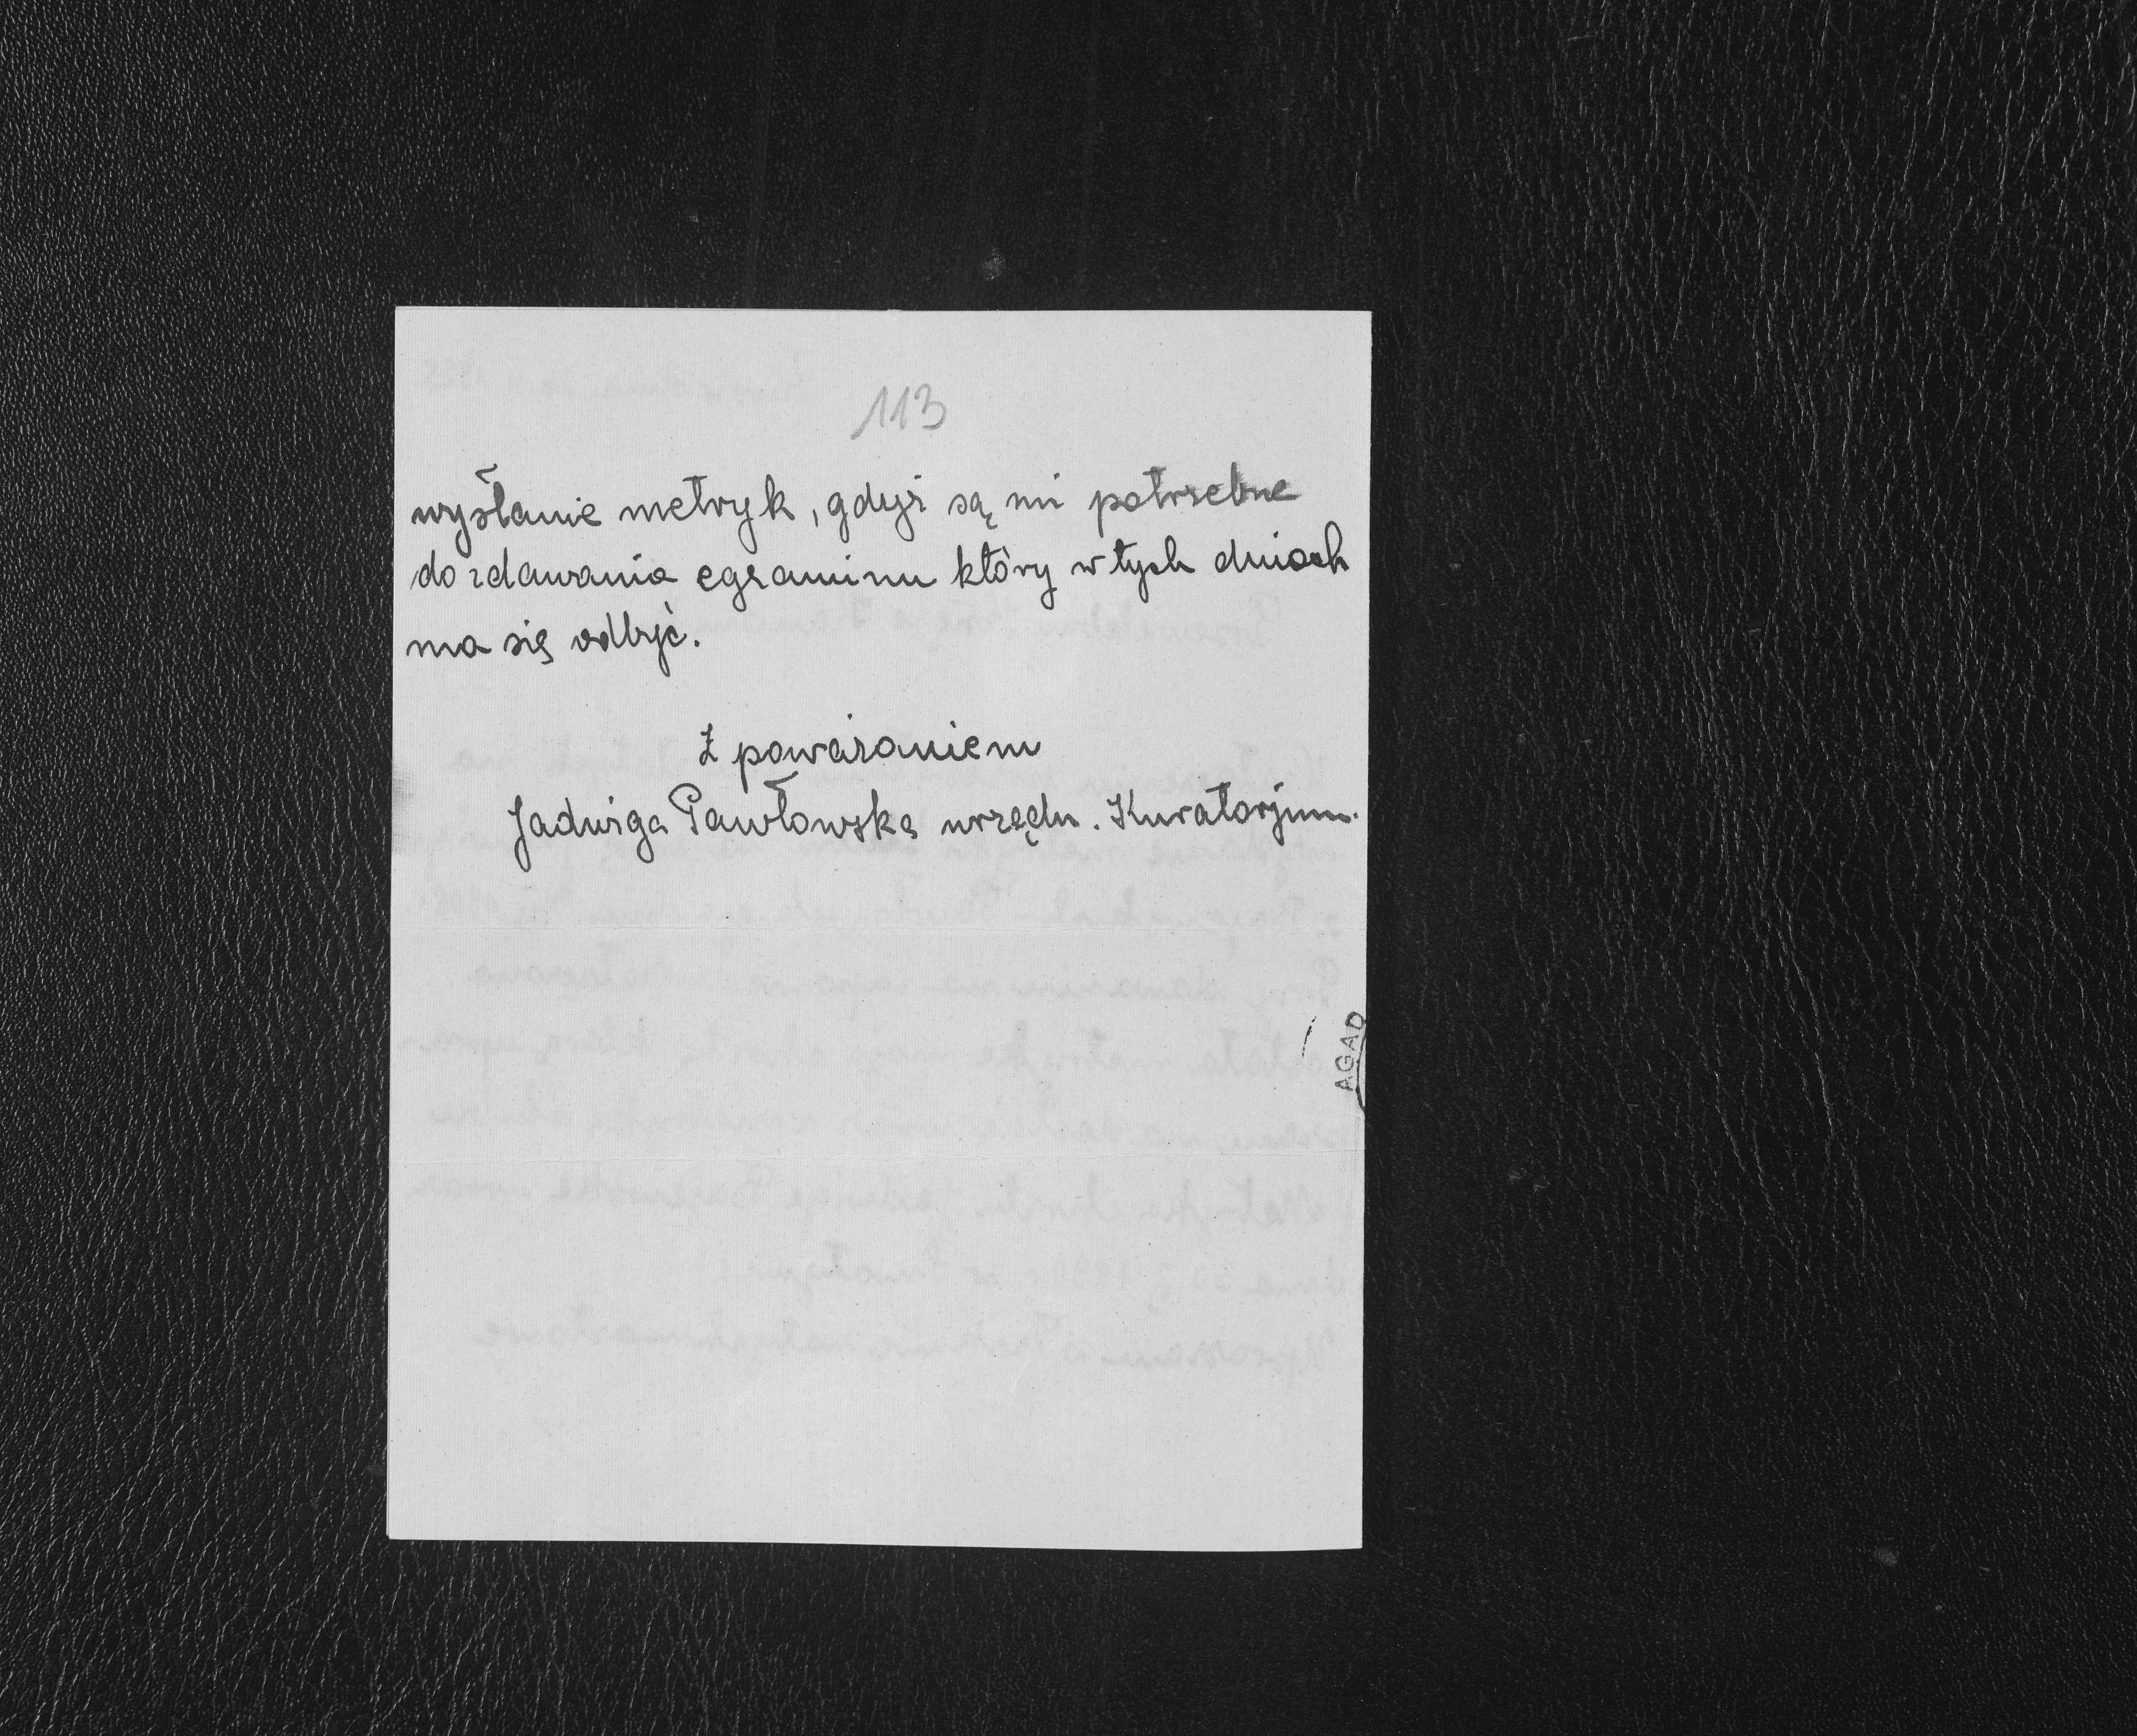 113
wysłanie metryk, gdyż są mi potrzebne
do zdawania egzaminu który w tych dniach
ma się odbyć.
Z poważaniem
Jadwiga Pawłowska urzędn. Kuratorjum.
AGAD